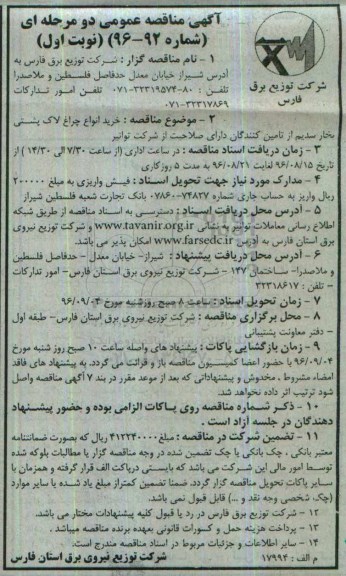 آگهی مناقصه عمومی دو مرحله ای
(شماره ۹۲-۹۶) (نوبت اول)
شرکت توزیع برق
فارس
۱ - نام مناقصه گزار : شرکت توزیع برق فارس به
آدرس شیراز خیابان معدل حدفاصل فلسطین و ملاصدرا
تلفن : ۸۰-۳۲۳۱۹۵۷۴-۰۷۱ تلفن امور تدارکات
۰۷۱-۳۲۳۱۷۸۶۹
۲ - موضوع مناقصه : خرید انواع چراغ لاک پشتی
بخار سدیم از تامین کنندگان دارای صلاحیت از شرکت توانیر
۳ - زمان دریافت اسناد مناقصه : در ساعت اداری (از ساعت ۷/۳۰ الی ۱۴/۳۰ ) از
تاریخ ۹۶/۰۸/۱۵ لغایت ۹۶/۰۸/۲۱ به مدت ۵ روزکاری
۴ - مدارک مورد نیاز جهت تحویل اسناد : فیش واریزی به مبلغ ۲۰۰۰۰۰
ریال واریز به حساب جاری شماره ۷۴۸۲۷-۰۷۸۶۰ بانک تجارت شعبه فلسطین شیراز
۵ - آدرس محل دریافت اسناد : دسترسی به اسناد مناقصه از طریق شبکه
اطلاع رسانی معاملات توانیر به نشانی www.tavanir.org.ir و شرکت توزیع نیروی
برق استان فارس به آدرس www.farsedc.ir امکان پذیر می باشد.
۶ - آدرس محل دریافت پیشنهاد : شیراز- خیابان معدل - حدفاصل فلسطین
و ملاصدرا- ساختمان ۱۴۷ - شرکت توزیع نیروی برق استان فارس- امور تدارکات
- تلفن : ۳۲۳۱۸۶۱۷
۷ - زمان تحویل اسناد : ساعت ۸ صبح روزشنبه مورخ ۹۶/۰۹/۰۴
۸ - محل برگزاری مناقصه : شرکت توزیع نیروی برق استان فارس- طبقه اول
- دفتر معاونت پشتیبانی
۹ - زمان بازگشایی پاکات : پیشنهاد های واصله ساعت ۱۰ صبح روز شنبه مورخ
۹۶/۰۹/۰۴ با حضور اعضا کمیسیون مناقصه باز و قرائت می گردد. به پیشنهاد های فاقد
امضاء مشروط ، مخدوش و پیشنهاداتی که بعد از موعد مقرر در بند ۷ آگهی مناقصه واصل
شود ترتیب اثر داده نخواهد شد.
۱۰ - ذکر شماره مناقصه روی پاکات الزامی بوده و حضور پیشنهاد
دهندگان در جلسه آزاد است .
۱۱ - تضمین شرکت در مناقصه : مبلغ ۴۱۲۲۴۰۰۰۰ ریال که بصورت ضمانتنامه
معتبر بانکی ، چک بانکی یا چک تضمین شده در وجه مناقصه گزار یا مطالبات بلوکه شده
توسط امور مالی این شرکت می باشد که بایستی درپاکت الف قرار گرفته و همزمان با
سایر پاکات تحویل مناقصه گزار گردد. ضمنا تضمین کمتراز مبلغ یاد شده یا سایر موارد
(چک شخصی وجه نقد و ...) قابل قبول نمی باشد.
۱۲ - شرکت توزیع برق فارس در رد یا قبول کلیه پیشنهادات مختار می باشد.
۱۳ - پرداخت هزینه حمل و کسورات قانونی بعهده برنده مناقصه میباشد .
۱۴ - سایر اطلاعات و جزئیات مربوط در اسناد مناقصه مندرج است.
م الف : ۱۷۹۹۴ شرکت توزیع نیروی برق استان فارس